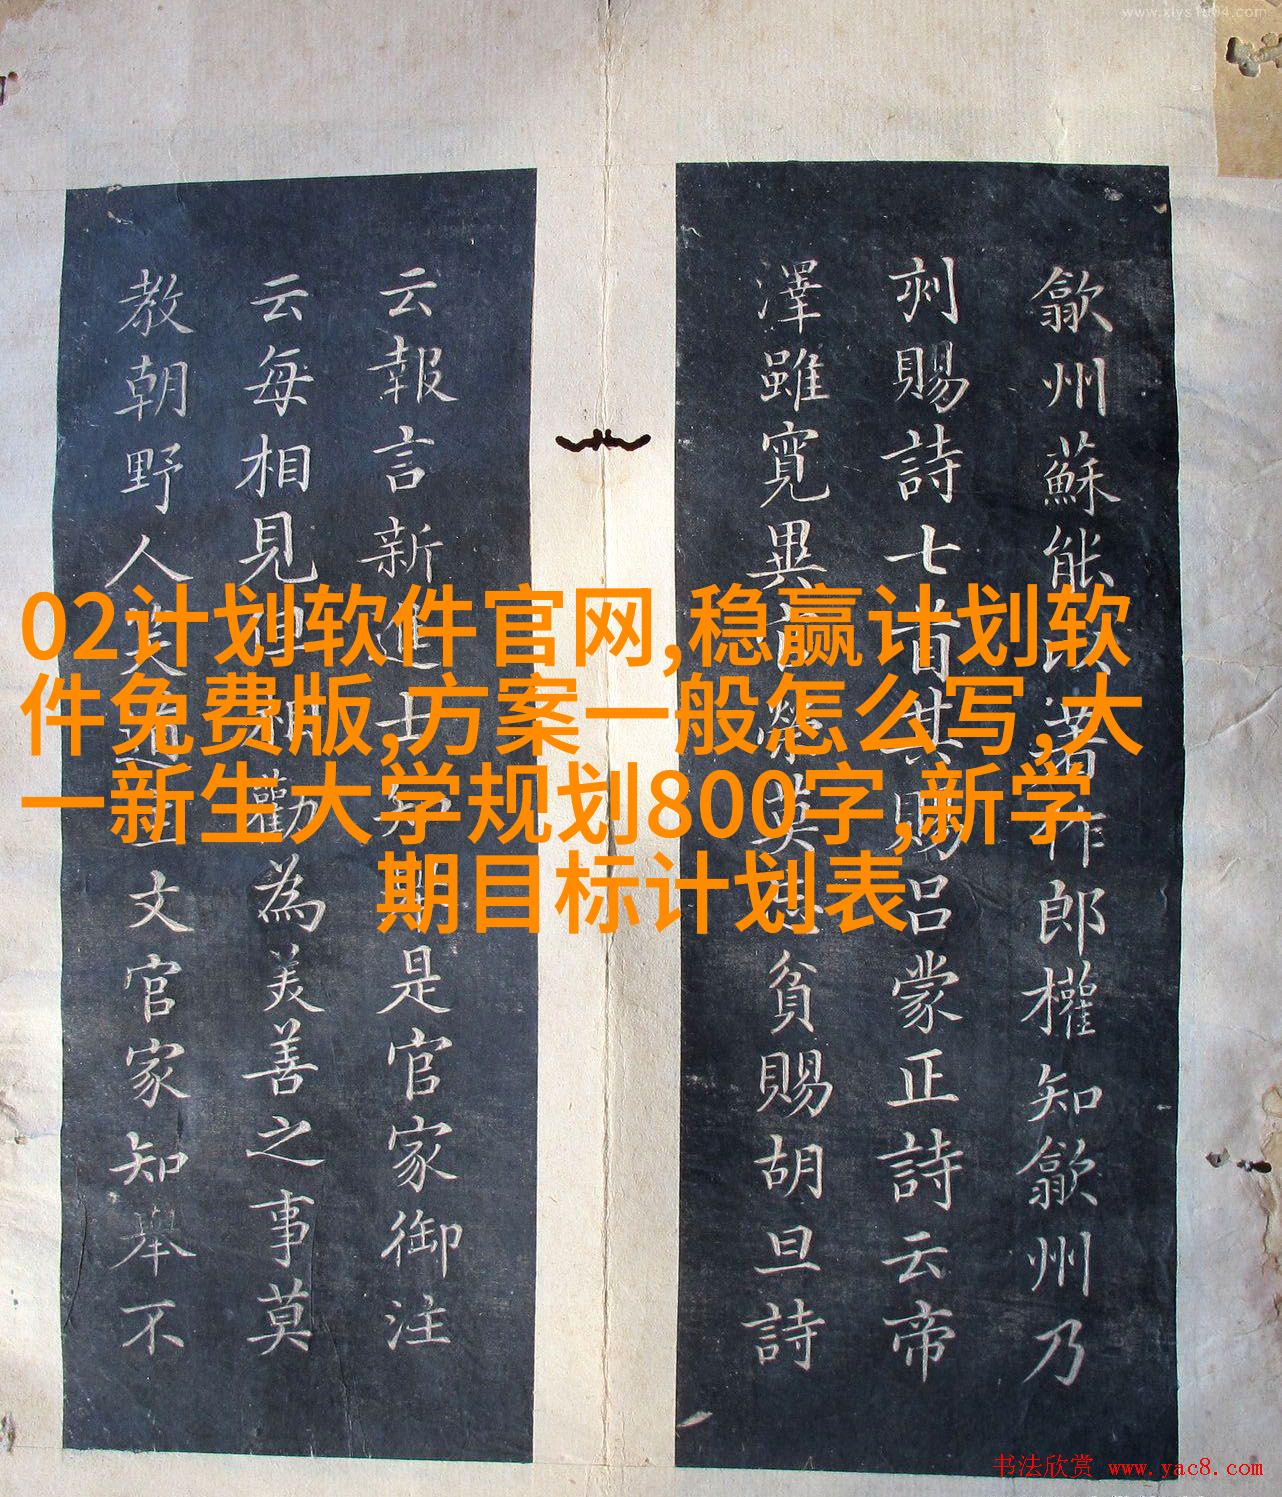 www.xiys1004.com
歙州蘇能著作郎權知歙州乃
刺賜詩七首其賜呂蒙正詩云帝
澤雖寬異英貧賜胡旦詩
云報言新進士是官家御注
云每相見相勸為美善之事莫
教朝野人笑道文官家知舉不
02计划软件官网,稳赢计划软
件免费版,方案一般怎么写,大
一新生大学规划800字,新学
期目标计划表
书法欣赏 www.yac8.com